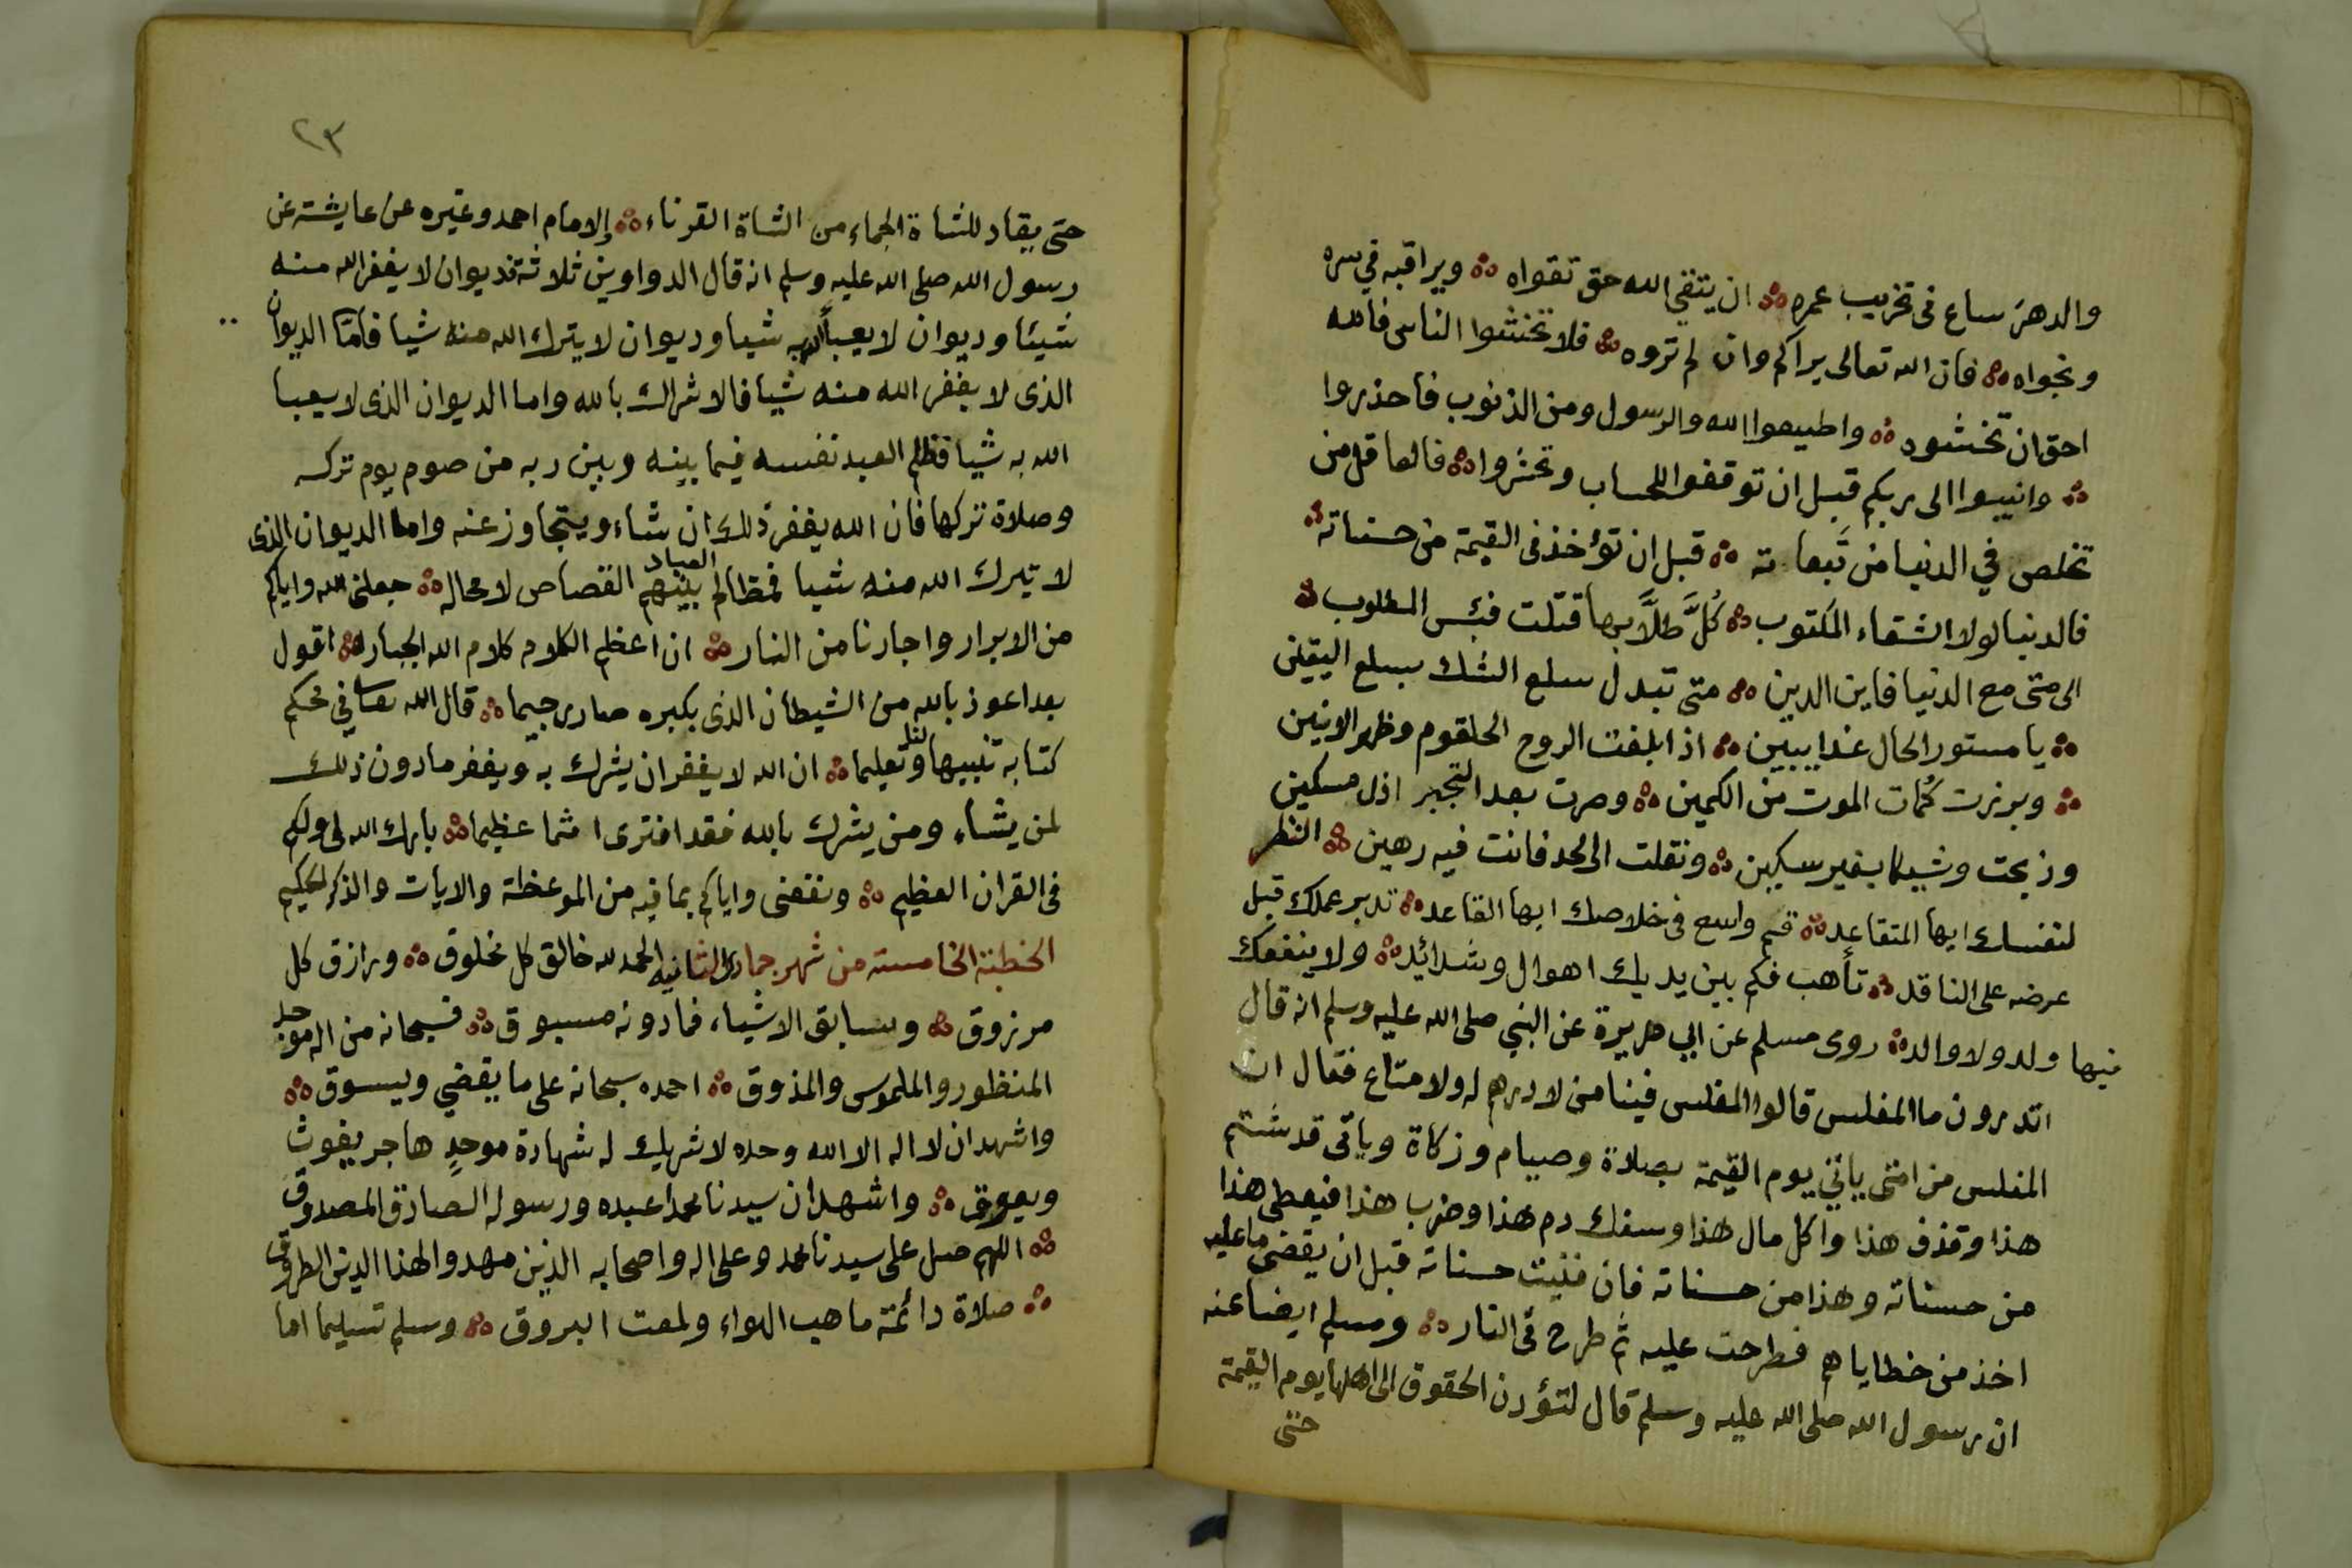 والدهر ساع فى تخريب عمره ؞ ان يتقي الله حق تقواه ؞ ويراقبه في سره
ونجواه ؞ فان الله تعالى يراكم وان لم تروه ؞ فلا تخشوا الناس فالله
احق ان تخشوه ؞ واطيعوا الله والرسول ومن الذنوب فاحذروا
؞ وانيبوا الى ربكم قبل ان توقفوا للحساب وتحشروا ؞ فالعاقل من
تخلص في الدنيا من تَبعاته ؞ قبل ان تؤخذ فى القيمة من حسناته ؞
فالدنيا لولا الشقاء المكتوب ؞ كُلَّ طلَّابها قتلت فبئس المطلوب ؞
الى متى مع الدنيا فاين الدين ؞ متى تبدل سلع الشك بسلع اليقين
؞ يا مستور الحال غدا يبين ؞ اذا بلغت الروح الحلقوم وظهر الانين
؞ وبرزت كُمات الموت من الكمين ؞ وصرت بعد التجبر اذل مسكين
وذبحت وشيكا بغير سكين ؞ ونقلت الى لحد فانت فيه رهين ؞ انظر
لنفسك ايها المتقاعد ؞ قم واسع فى خلاصك ايها القاعد ؞ تدبر عملك قبل
عرضه على الناقد ؞ تأهب فكم بين يديك اهوال وشدائد ؞ ولا ينفعك
فيها ولد ولا والد ؞ روى مسلم عن ابي هريرة عن النبي صلى الله عليه وسلم انه قال
اتدرون ما المفلس قالوا المفلس فينا من لا درهم له ولا متاع فقال ان
المفلس من امتى ياتي يوم القيمة بصلاة وصيام وزكاة وياتى قد شتم
هذا وقذف هذا واكل مال هذا وسفك دم هذا وضرب هذا فيعطى هذا
من حسناته وهذا من حسناته فان فنيت حسناته قبل ان يقضى ما عليه
اخذ من خطاياهم فطرحت عليه ثم طرح فى النار ؞ ومسلم ايضا عنه
ان رسول الله صلى الله عليه وسلم قال لتؤدن الحقوق الى اهلها يوم القيمة
حتى
٢٣
حتى يقاد للشاة الجماء من الشاة القرناء ؞ الامام احمد وغيره عن عايشة عن
رسول الله صلى الله عليه وسلم انه قال الدواوين ثلاثة فديوان لا يغفر الله منه
شيئا وديوان لا يعبأ الله به شيا وديوان لا يترك الله منه شيا فاما الديوان
الذى لا يغفر الله منه شيا فالاشراك بالله واما الديوان الذى لا يعبا
الله به شيا فظلم العبد نفسه فيما بينه وبين ربه من صوم يوم تركه
وصلاة تركها فان الله يغفر ذلك ان شاء ويتجاوز عنه واما الديوان الذى
لا يترك الله منه شيا فمظالم العباد بينهم القصاص لا محاله ؞ جعلنى الله واياكم
من الابرار واجارنا من النار ؞ ان اعظم الكلام كلام الله الجبار ؞ اقول
بعد اعوذ بالله من الشيطان الذى بكبره صار رجيما ؞ قال الله تعا في محكم
كتابه تنبيها لنا وتعليما ؞ ان الله لا يغفر ان يشرك به ويغفر ما دون ذلك
لمن يشاء ومن يشرك بالله فقد افترى اثما عظيما ؞ بارك الله لى ولكم
فى القران العظيم ؞ ونفعنى واياكم بما فيه من الموعظة والايات والذكر الحكيم
الخطبة الخامسة من شهر جمادى الثانيه الحمد لله خالق كل مخلوق ؞ ورازق كل
مرزوق ؞ وسابق الاشياء فما دونه مسبوق ؞ فسبحانه من اله موجد
المنظور والملموس والمذوق ؞ احمده سبحانه على ما يقضي ويسوق ؞
واشهد ان لا اله الا الله وحده لا شريك له شهادة موحدٍ هاجر يغوث
ويعوق ؞ واشهد ان سيدنا محمدا عبده ورسوله الصادق المصدوق
؞ اللهم صل على سيدنا محمد وعلى اله واصحابه الذين مهدوا لهذا الدين الطروق
؞ صلاة دائمة ما هب الهواء ولمعت البروق ؞ وسلم تسليما اما